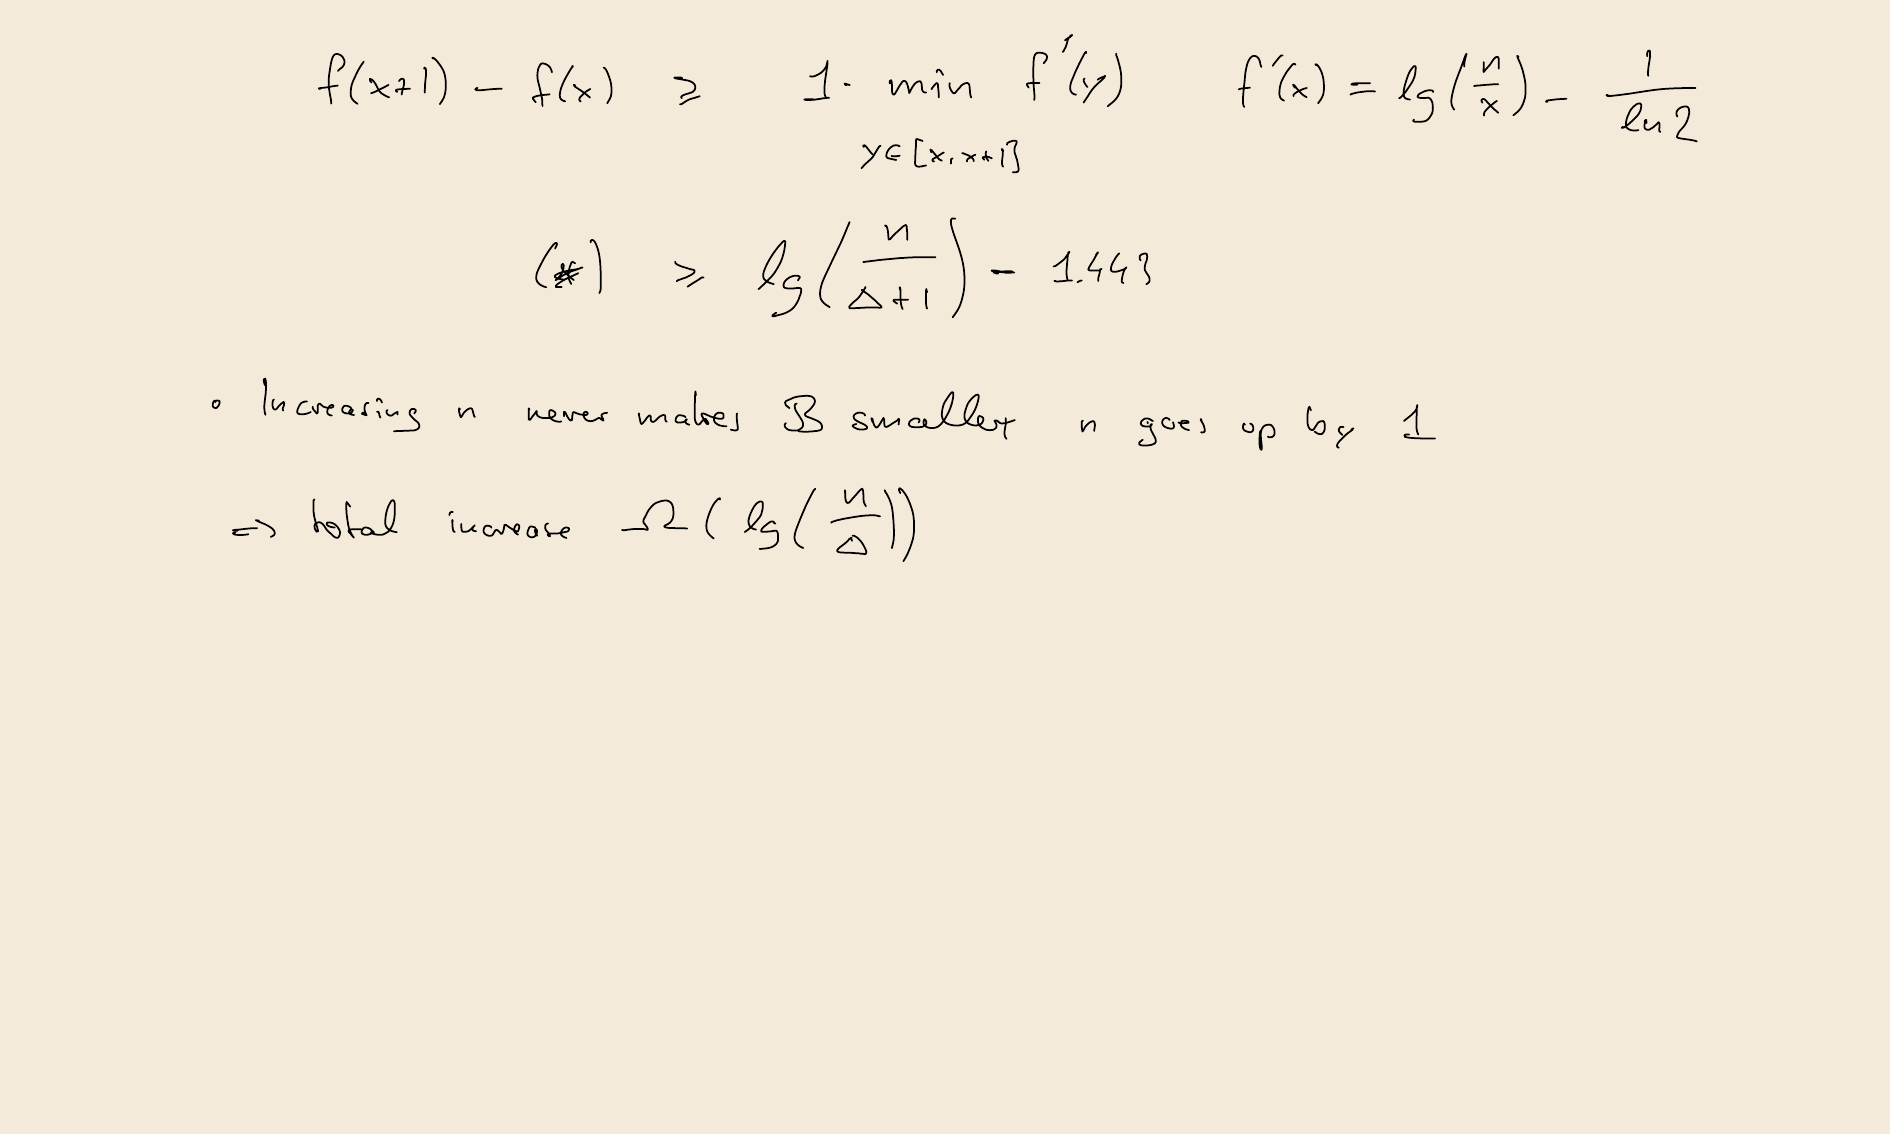 f(x+1) - f(x) ≥ 1 · min f'(y) f'(x) = lg(n/x) - 1/ln 2
y∈[x, x+1]
(*) ≥ lg(n/(Δ+1)) - 1.443
• Increasing n never makes B smaller n goes up by 1
=> total increase Ω(lg(n/Δ))